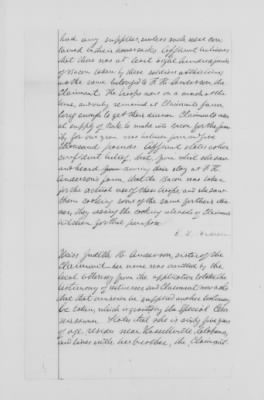 had any supplies, unless such were con
tained in their haversacks. Affiant believes
that there was at least eight hundred pounds
of bacon taken by these soldiers at this time
and the same belonged to F. H. Anderson, the
Claimant. The troops were on a march at the
time, and only remained at Claimants farm
long enough to get their dinner. Claimants usu
al supply of
ly for one year was
thousand pounds. Affiant states other
confident belief that, from what she saw
and heard during their stay at F. H.
Andersons farm, that the bacon was taken
for the actual use of these troops, and she saw
them cooking some of the same for their din
ner, they using the cooking utensils of Claimants
kitchen for that purpose.
Miss Judith K. Anderson, sister of the
Claimant her name was omitted by the
local attorney from the application to take the
testimony of witnesses and Claimant now asks
that that omission be supplied and her testimony
be taken, which is granted by the Special Com
missioner. States that she is sixty five years
of age resides near Russellville, Alabama,
and lives with her brother, the Claimant.